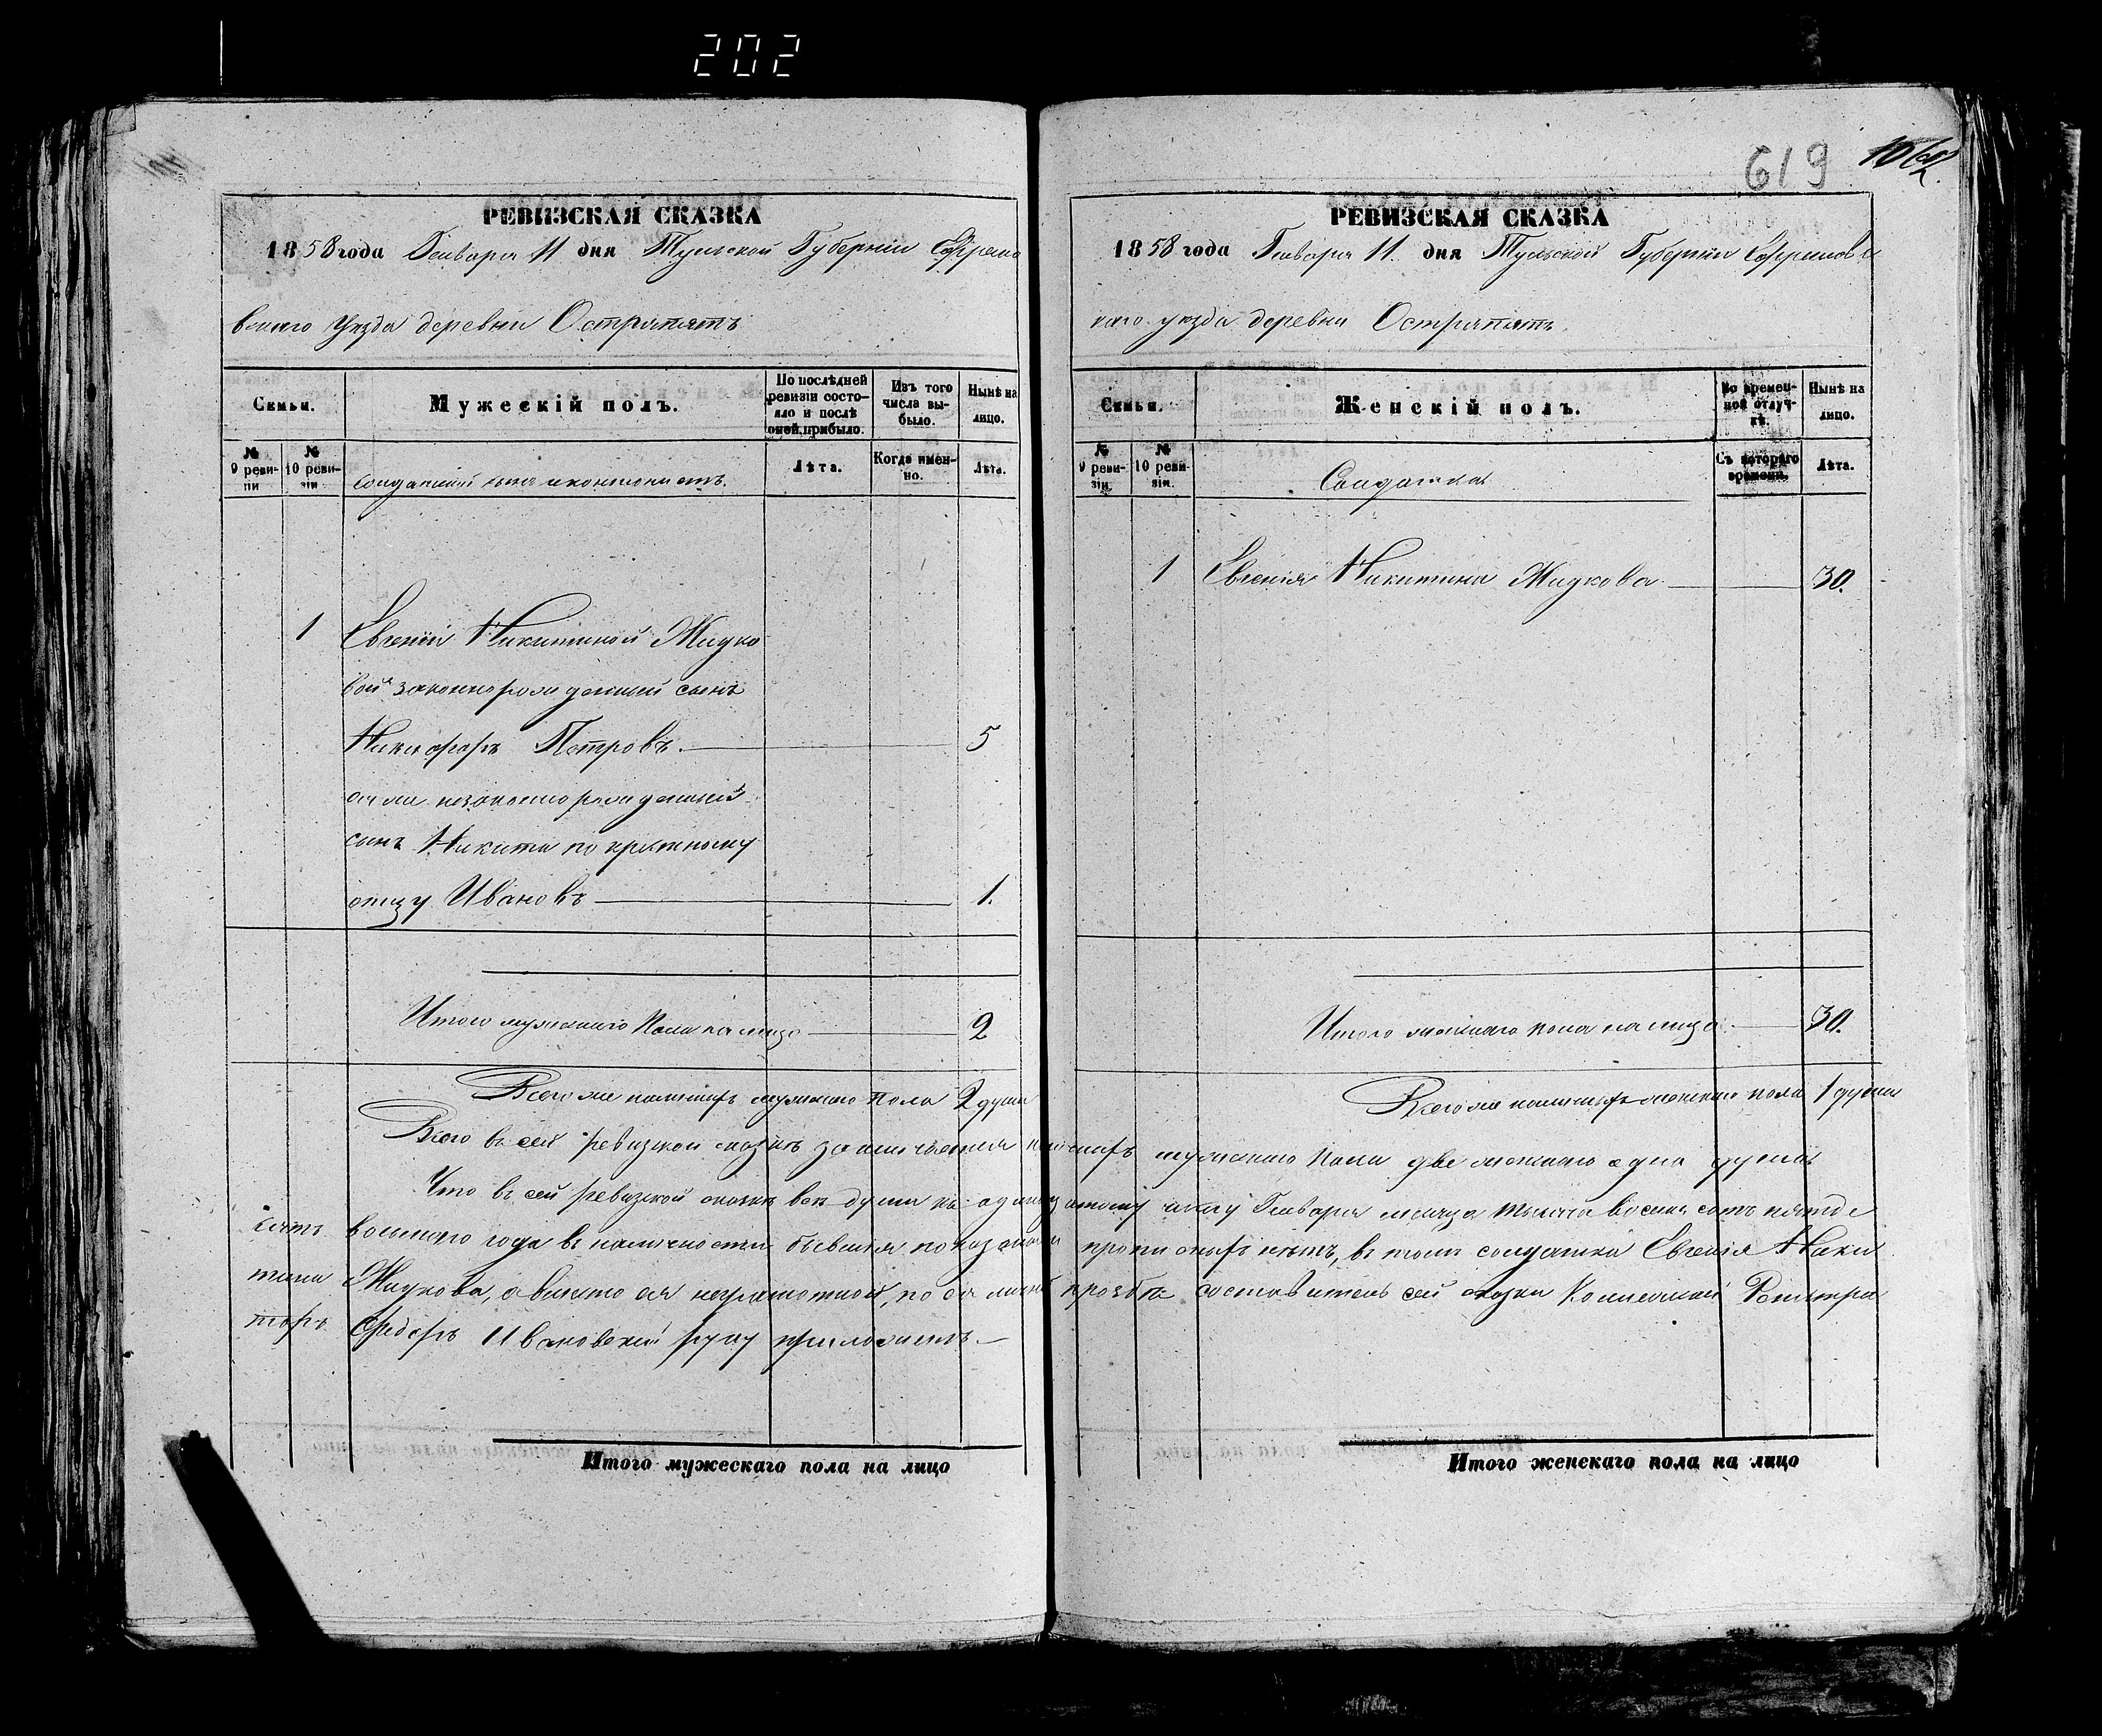 202
619
РЕВИЗСКАЯ СКАЗКА
1858 года Генваря 11 дня Тульской Губерніи Ефремо
вскаго уезда деревни Острапятъ
Семьи.
Мужескій полъ.
По послѣдней ревизіи состояло и послѣ оней прибыло.
Изъ того числа выбыло.
Нынѣ на лицо.
№ 9 ревизіи
№ 10 ревизіи.
Лѣта.
Когда именно.
Лѣта.
1 Евгеніи Никитиной Жидко
вой законнорожденный сынъ
Никифоръ Петровъ. 5
ея же незаконнорожденный
сынъ Никита по крестному
отцу Ивановъ 1.
Итого мужескаго пола на лицо 2
Всего же налицо мужескаго пола 2 души
Итого мужескаго пола на лицо
РЕВИЗСКАЯ СКАЗКА
1858 года Генваря 11. дня Тульской Губерніи Ефремовс
каго уезда деревни Острапятъ.
Семьи.
Женскій полъ.
Во временной отлучкѣ.
Нынѣ на лицо.
№ 9 ревизіи.
№ 10 ревизіи.
Солдатка
Съ котораго времени.
Лѣта.
1 Евгенія Никитина Жидкова 30.
Итого женскаго пола на лицо 30.
Всего же женскаго пола 1 душа
Всего въ сей ревизской сказкѣ заключается мужескаго пола две женскаго одна душа
Что въ сей ревизской сказкѣ все души къ Генваря месяца тысяча восемь сотъ пятьде
сятъ восьмаго года въ наличности бывшия показаны и прописныхъ нетъ, въ томъ солдатка Евгенія Ники
тина Жидкова, а вместо ея неграмотной, по ея прозбе составитель сей сказки Колежской Регистра
торъ Федоръ Ивановской руку приложилъ.
Итого женскаго пола на лицо